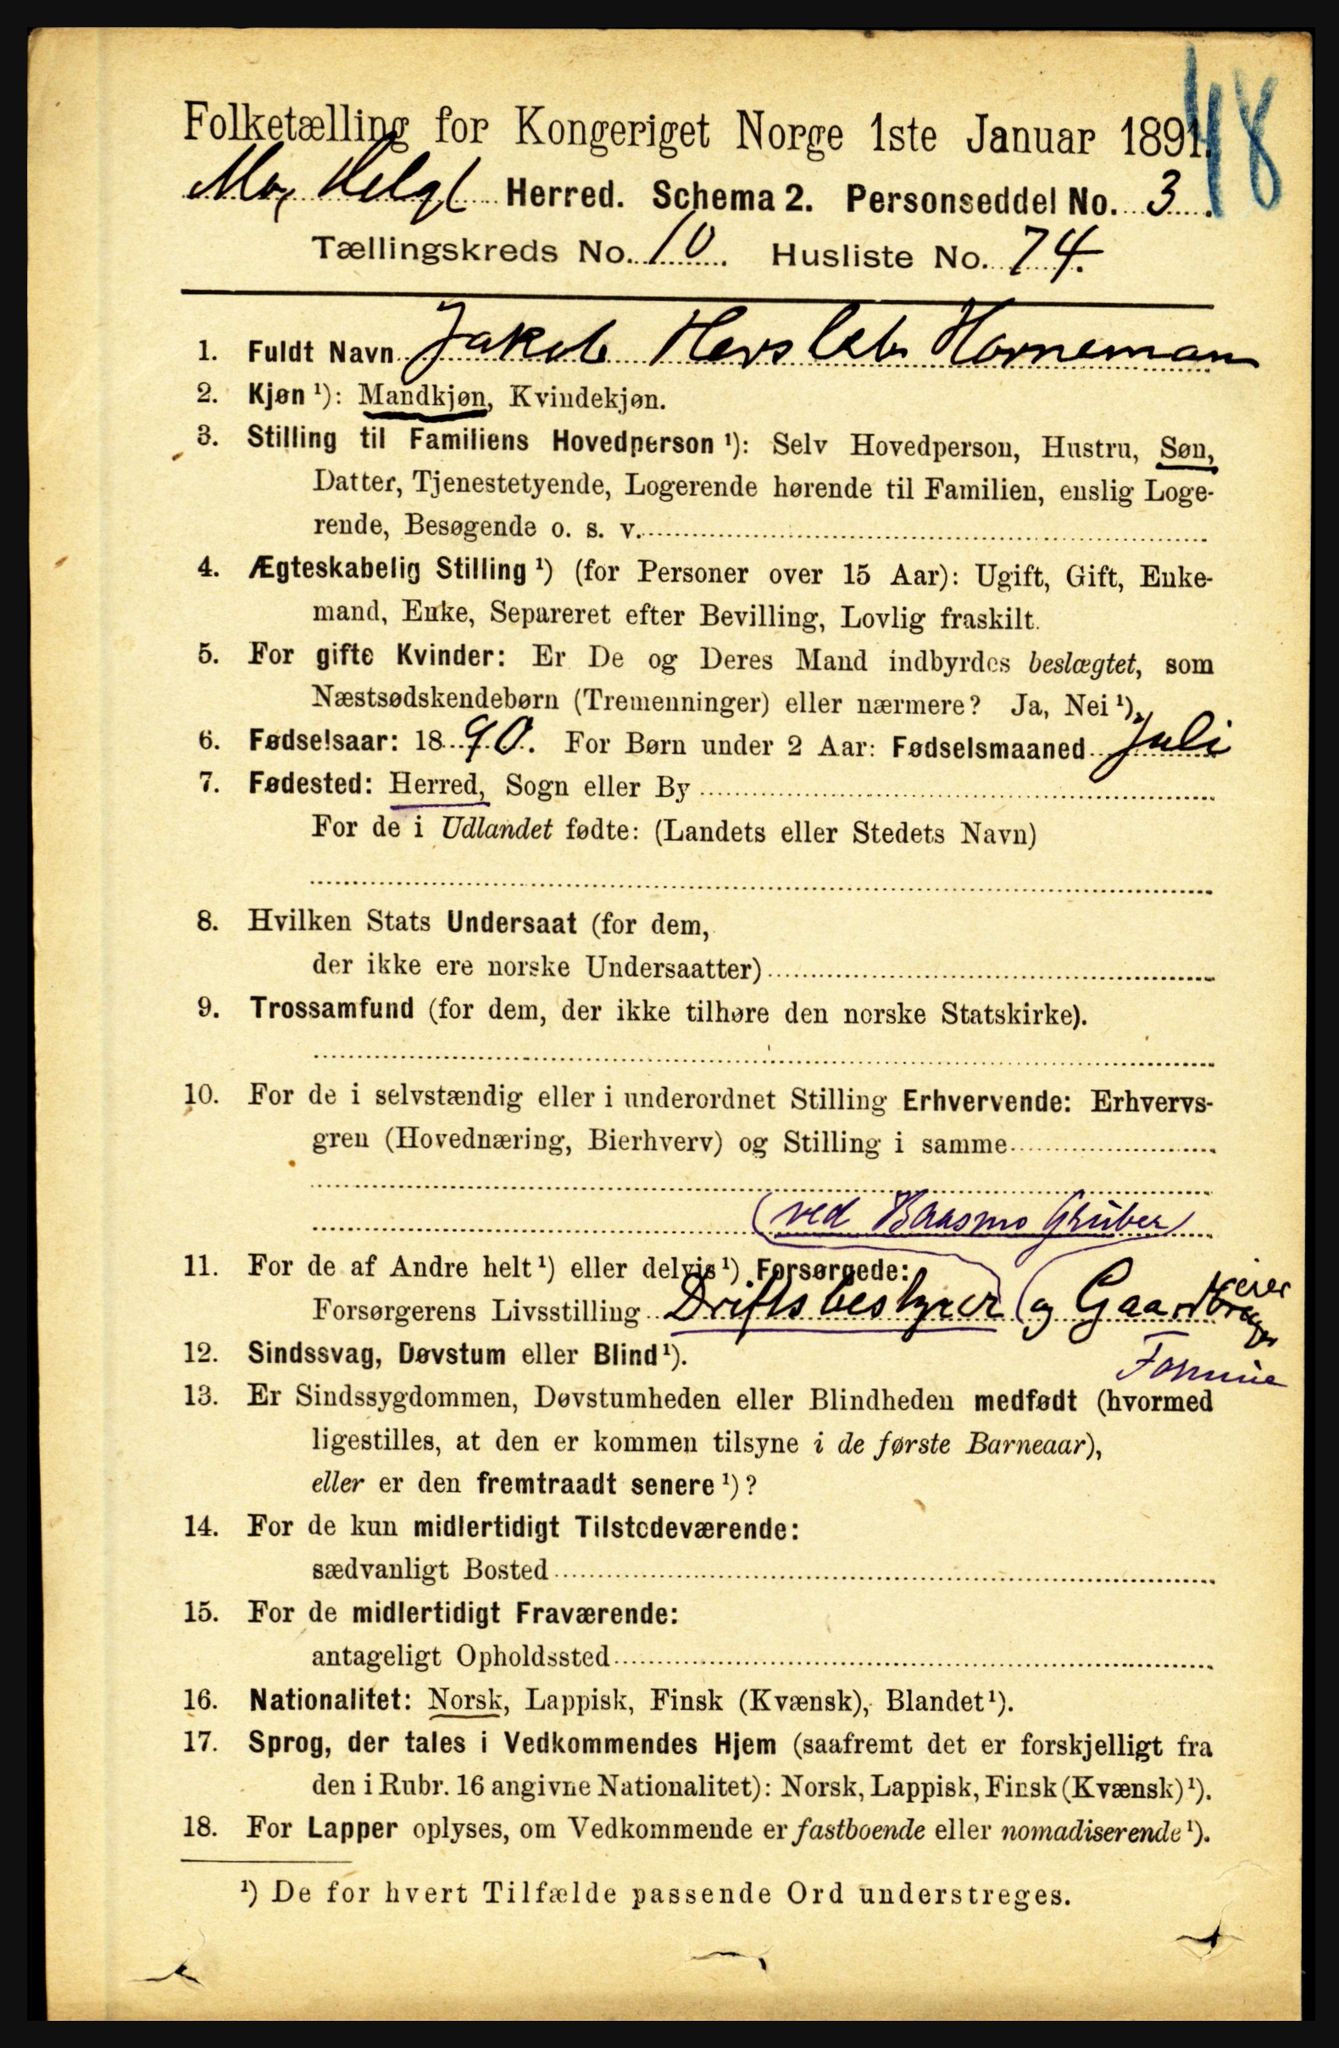 48
Folketælling for Kongeriget Norge 1ste Januar 1891.
Mo, Helgl Herred. Schema 2. Personseddel No. 3.
Tællingskreds No. 10. Husliste No. 74.
1. Fuldt Navn Jakob Hersleb Horneman
2. Kjøn ¹): Mandkjøn, Kvindekjøn.
3. Stilling til Familiens Hovedperson ¹): Selv Hovedperson, Hustru, Søn,
Datter, Tjenestetyende, Logerende hørende til Familien, enslig Loge-
rende, Besøgende o. s. v.
4. Ægteskabelig Stilling ¹) (for Personer over 15 Aar): Ugift, Gift, Enke-
mand, Enke, Separeret efter Bevilling, Lovlig fraskilt.
5. For gifte Kvinder: Er De og Deres Mand indbyrdes beslægtet, som
Næstsødskendebørn (Tremenninger) eller nærmere? Ja, Nei ¹).
6. Fødselsaar: 1890. For Børn under 2 Aar: Fødselsmaaned Juli
7. Fødested: Herred, Sogn eller By
For de i Udlandet fødte: (Landets eller Stedets Navn)
8. Hvilken Stats Undersaat (for dem,
der ikke ere norske Undersaatter)
9. Trossamfund (for dem, der ikke tilhøre den norske Statskirke).
10. For de i selvstændig eller i underordnet Stilling Erhvervende: Erhvervs-
gren (Hovednæring, Bierhverv) og Stilling i samme
(ved Baasmo Gruber)
11. For de af Andre helt ¹) eller delvis ¹) Forsørgede:
Forsørgerens Livsstilling Driftsbestyrer og Gaardbruger
eier
12. Sindssvag, Døvstum eller Blind ¹).
13. Er Sindssygdommen, Døvstumheden eller Blindheden medfødt (hvormed
ligestilles, at den er kommen tilsyne i de første Barneaar),
eller er den fremtraadt senere ¹)?
14. For de kun midlertidigt Tilstedeværende:
sædvanligt Bosted
15. For de midlertidigt Fraværende:
antageligt Opholdssted
16. Nationalitet: Norsk, Lappisk, Finsk (Kvænsk), Blandet ¹).
17. Sprog, der tales i Vedkommendes Hjem (saafremt det er forskjelligt fra
den i Rubr. 16 angivne Nationalitet): Norsk, Lappisk, Finsk (Kvænsk) ¹).
18. For Lapper oplyses, om Vedkommende er fastboende eller nomadiserende ¹).
¹) De for hvert Tilfælde passende Ord understreges.